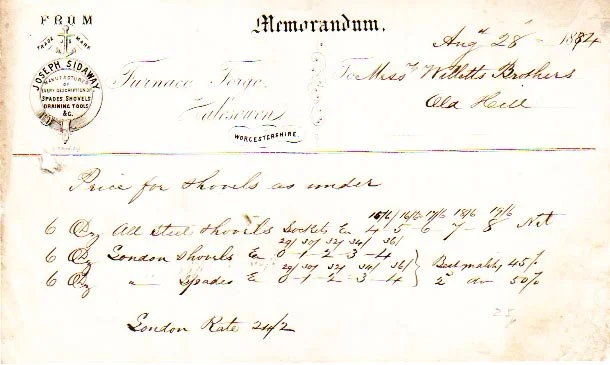 FROM
Memorandum.
TRADE MARK
JOSEPH SIDAWAY
MANUFACTURER
OF
EVERY DESCRIPTION OF
SPADES, SHOVELS
DRAINING TOOLS
&C.
Furnace Forge
Halesowen
WORCESTERSHIRE.
Augst 28 - 1884
To Messrs Willetts Brothers
Old Hill
Price for shovels as under
15/6 16/6 17/6 18/6 19/6
6 Dz All Steel Shovels Sockets Ea 4 - 5 - 6 - 7 - 8 Net
29/ 30/ 32/ 34/ 36/
6 Dz London Shovels Ea 0 - 1 - 2 - 3 - 4 } Best 45%
29/ 30/ 32/ 34/ 36/
6 Dz " Spades Ea 0 - 1 - 2 - 3 - 4 } 2d do 50%
London Rate 24/2